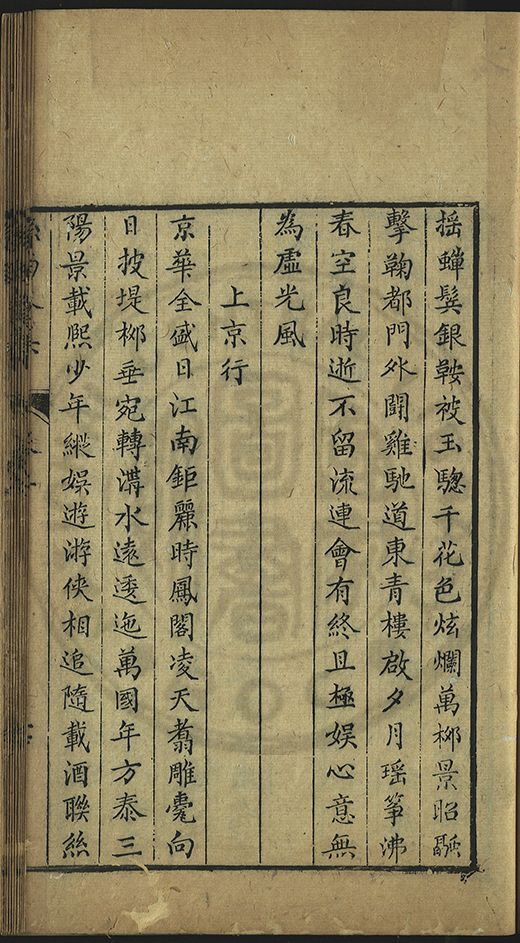 揺蟬鬂銀鞍被玉驄千花色炫爛萬桺景昭融
擊鞠都門外鬪雞馳道東青樓啟夕月瑶筝沸
春空良時逝不留流連會有終且極娱心意無
為虛光風
上京行
京華全盛日江南鉅麗時鳳閣凌天翥雕甍向
日披堤桺垂宛轉溝水遠逶迤萬國年方泰三
陽景載熈少年縱娱遊游俠相追隨載酒聯絲